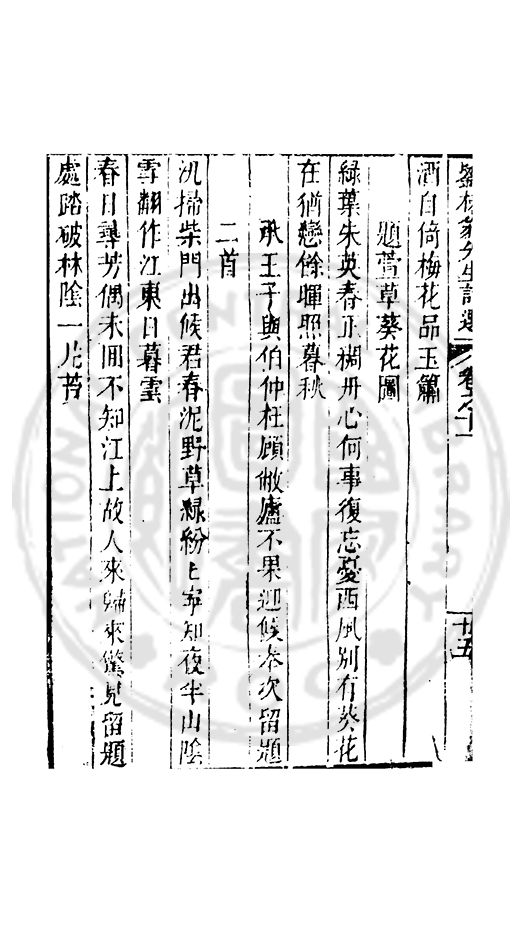 劉槎翁先生詩選 卷之十一 十五
酒自倚梅花品玉簫
題萱草葵花圖
綠葉朱英春正稠丹心何事復忘憂西風別有葵花
在猶戀餘暉照暮秋
承王子與伯仲枉顧敝廬不果迎候奉次留題
二首
汎掃柴門出候君春泥野草綠紛紛寧知夜半山陰
雪翻作江東日暮雲
春日尋芳偶未回不知江上故人來歸來驚見留題
處踏破林陰一片苔